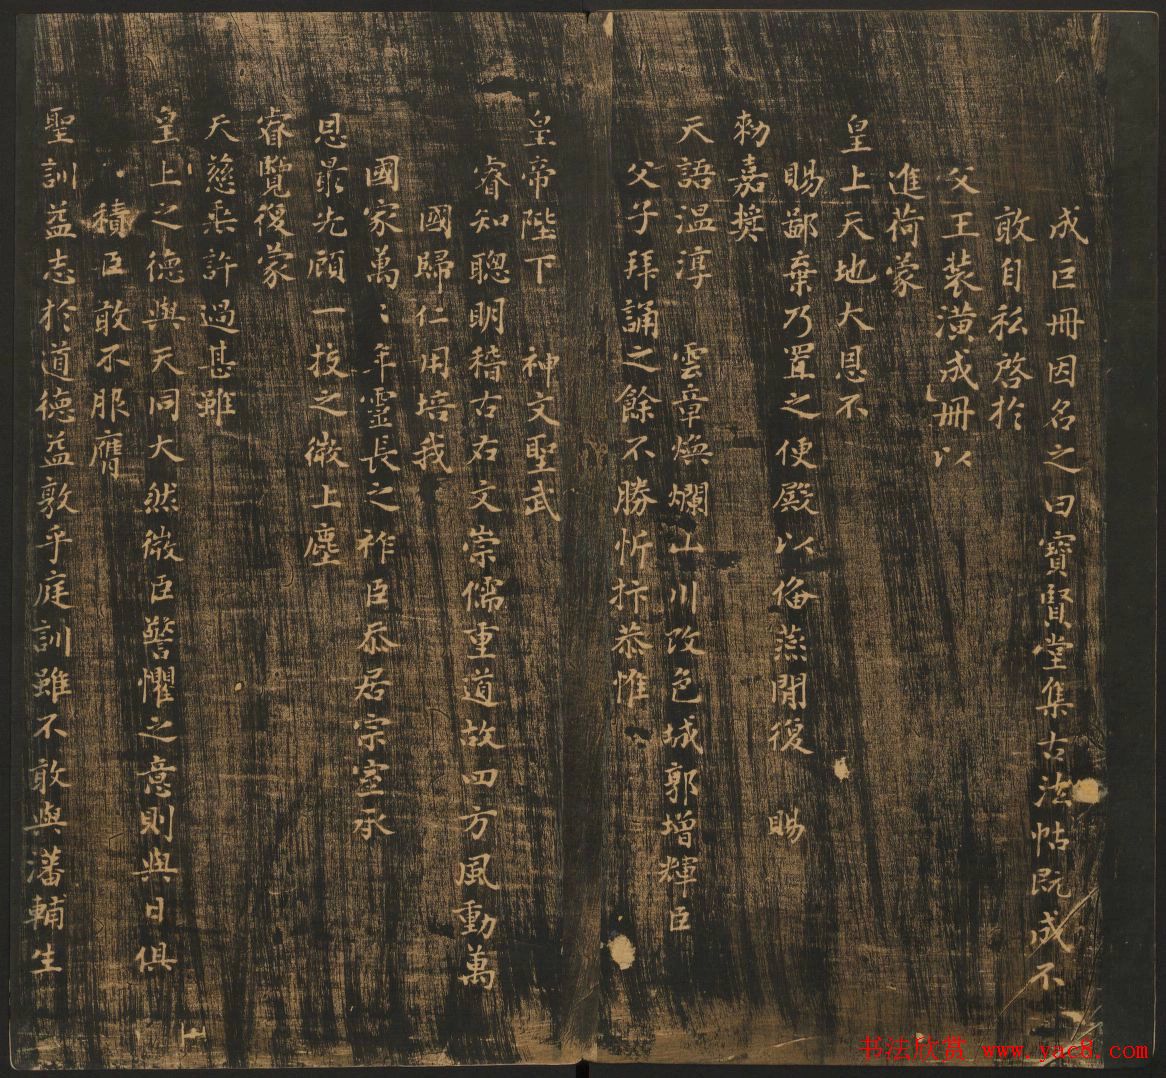 成巨冊因名之曰寶賢堂集古法帖既成不
敢自私啓於
父王装潢成冊以
進荷蒙
皇上天地大恩不
賜鄙棄乃置之便殿以俻燕閒復　賜
勑嘉奬
天語温淳　雲章煥爛山川改色城郭增輝臣
父子拜誦之餘不勝忻抃恭惟
皇帝陛下　神文聖武
睿知聰明稽古右文崇儒重道故四方風動萬
國歸仁用培我
國家萬〻年靈長之祚臣忝居宗室承
恩㝡先顧一技之微上塵
睿覽復蒙
天慈乘許過甚雖
皇上之德與天同大然微臣警懼之意則與日俱
積臣敢不服膺
聖訓益志於道德益敦乎庭訓雖不敢與藩輔生
书法欣赏 www.yac8.com